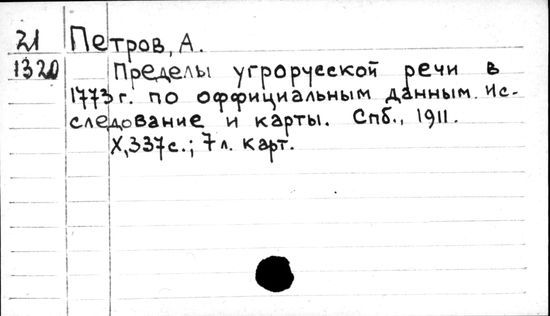 21 Петров, А.
1320 Пределы угрорусской речи в
1773 г. по оффициальным данным. Ис-
следование и карты. Спб., 1911.
X, 337 с.; 7 л. карт.